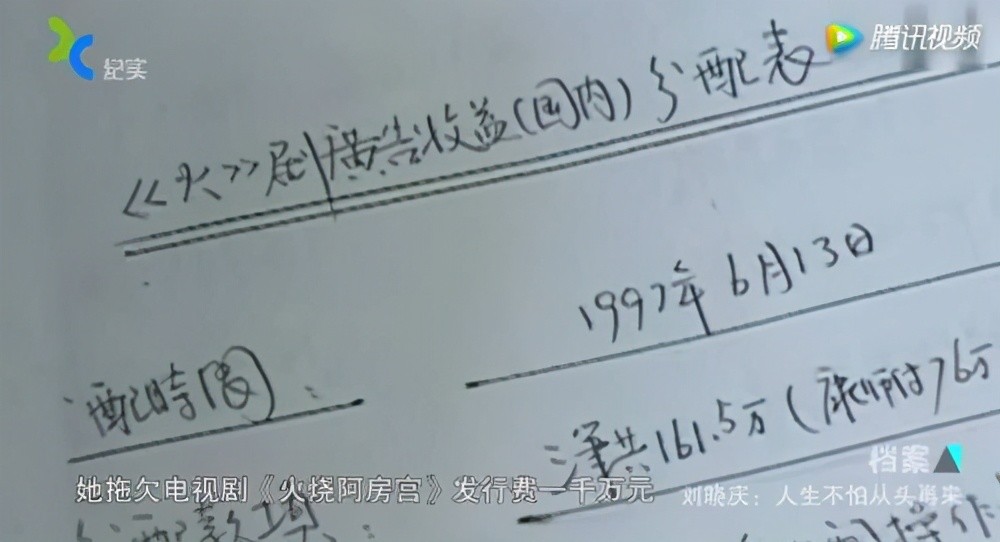 纪实
腾讯视频
《火》剧廣告收益(国内)分配表
1997年6月13日
配時间表:
共161.5万(康师付76万
档案
她拖欠电视剧《火烧阿房宫》发行费一千万元
刘晓庆:人生不怕从头再来
配款項: